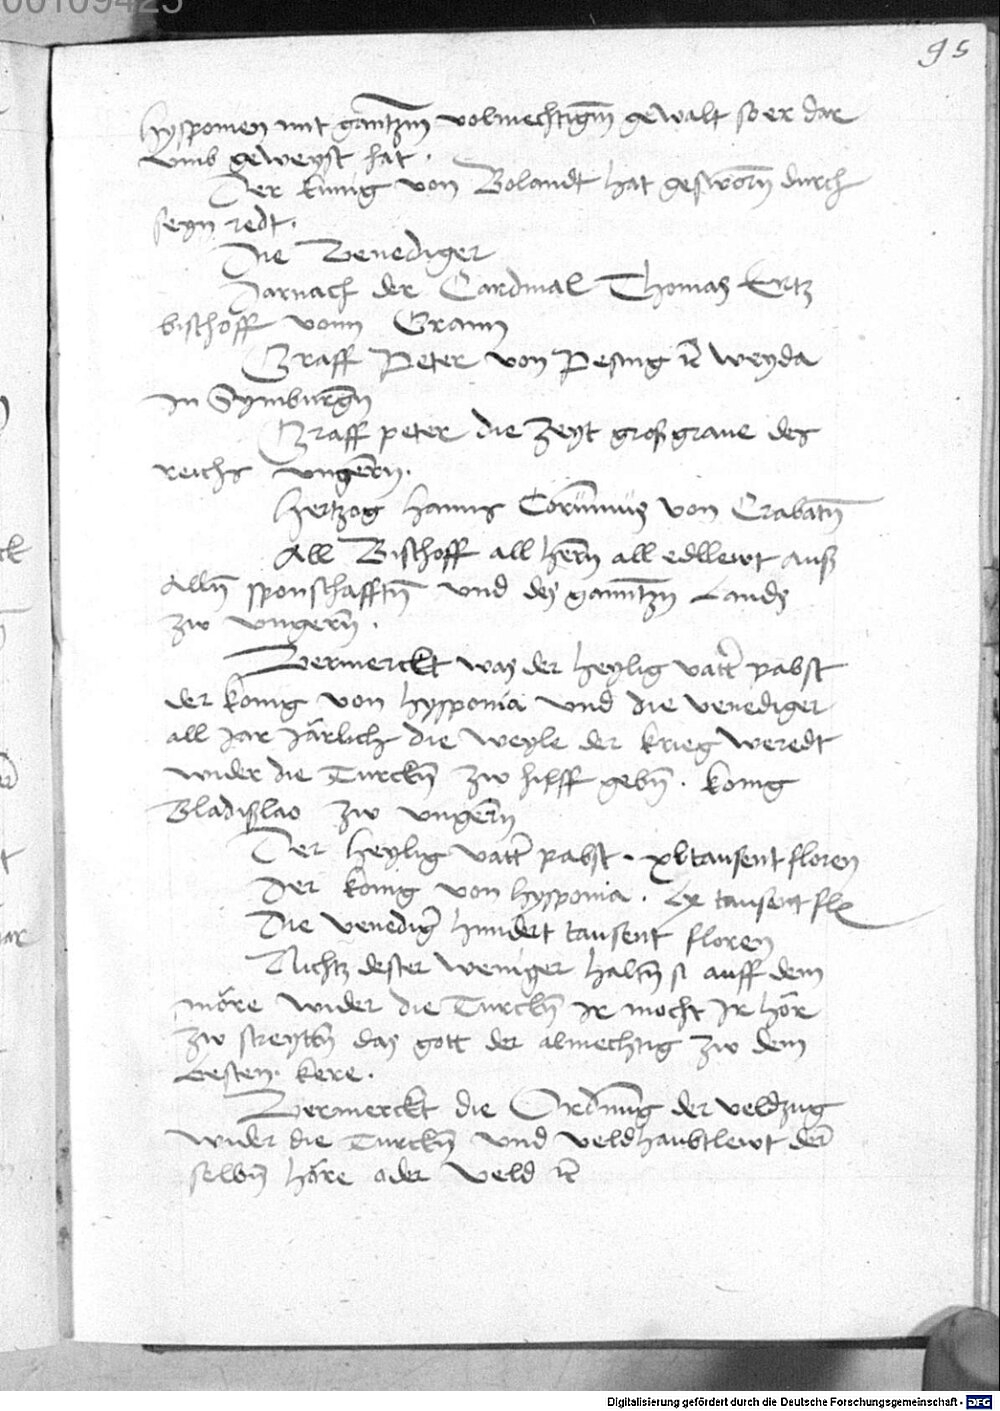 00109425
95
hysponien mit gantzm̄ volmechtigm̄ gewalt so er dar
Umb geweyst hat.
Der kunig von Bolandt hat geswornn̄ durch
seyn redt.
Die Venediger
Darnach der Cardinal Thomas Ertz
bischoff vonn Grann
Graff Peter von Pesing ꝛc weyda
in Symburgn̄
Graff peter die zeyt groß graue des
reichs ungern̄.
Hertzog hanns Corūinus von Crabatn̄
All Bischoff all hern̄ all edllewt auß
Alln̄ sponschafftn̄ und des gantzn̄ Lands
zw ungern̄.
Vermerckt was der heylig vattr̄ pabst
der konig von hysponia und die venediger
all iar Järlich die weyle der krieg weredt
wider die Turckn̄ zw hilff gebn̄. konig
Bladißlao zw ungern̄
Der heylig vattr̄ pabst. xl tausent floren
Der konig von hysponia. Lx tausent fl
Die venedigr̄ hundert tausent floren
Nichtz dester weniger haltn̄ s auff dem
möre wider die Turckn̄ ir mocht Ir hör
zw streytn̄ das gott der almechtig zw dem
besten. kere.
Vermerckt die Ordnūng der veldzug
wider die Turckn̄ und veldhaubtlewt der̄
selbn̄ höre oder veld ꝛc
Digitalisierung gefördert durch die Deutsche Forschungsgemeinschaft - DFG